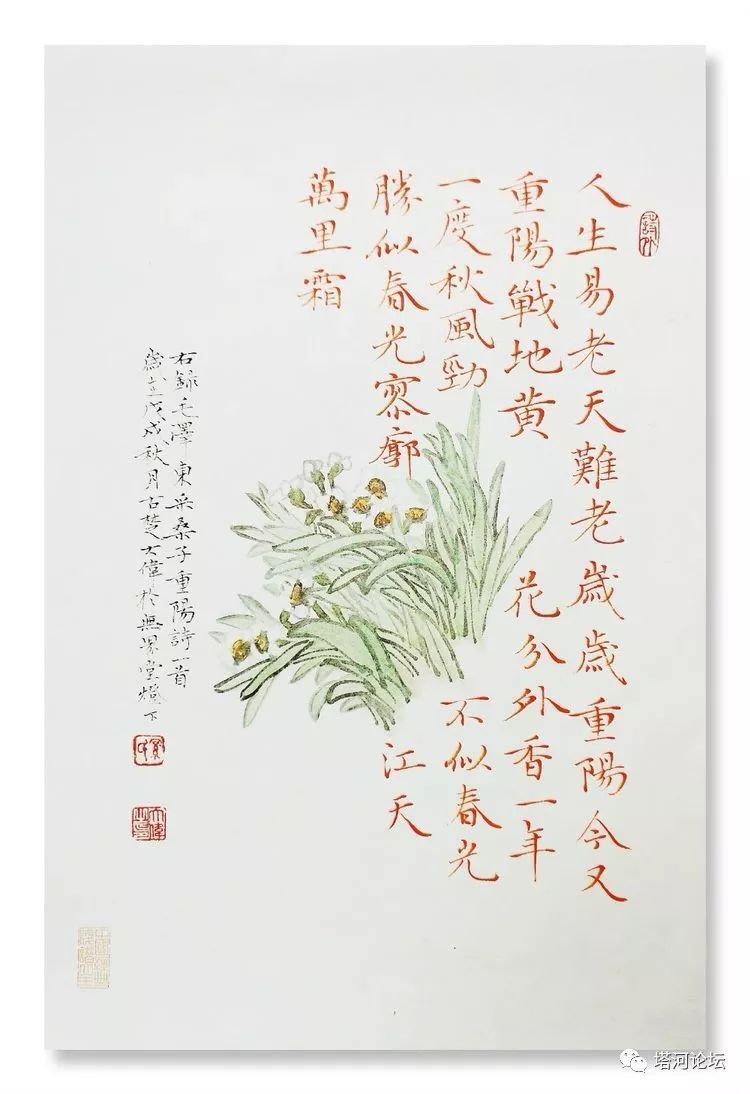 人生易老天難老歲歲重陽今又
重陽戰地黄花分外香一年
一度秋風勁不似春光
勝似春光寥廓江天
萬里霜
右錄毛澤東采桑子重陽詩一首
歲在戊戌秋月古楚大偉於無堂燈下
塔河论坛